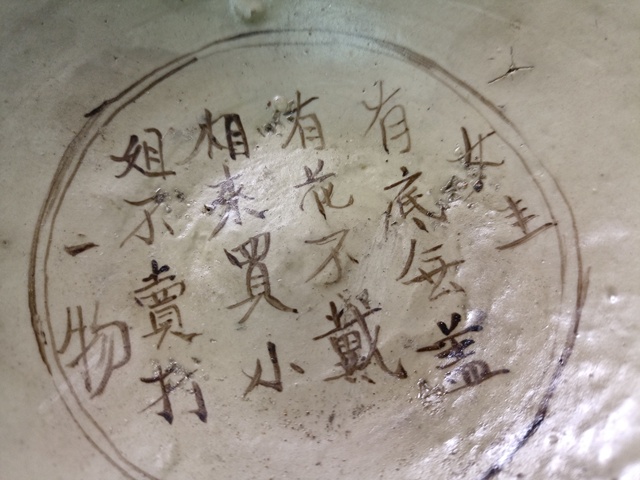 有底無盖
有花不戴
相来買小
姐不賣打
一物